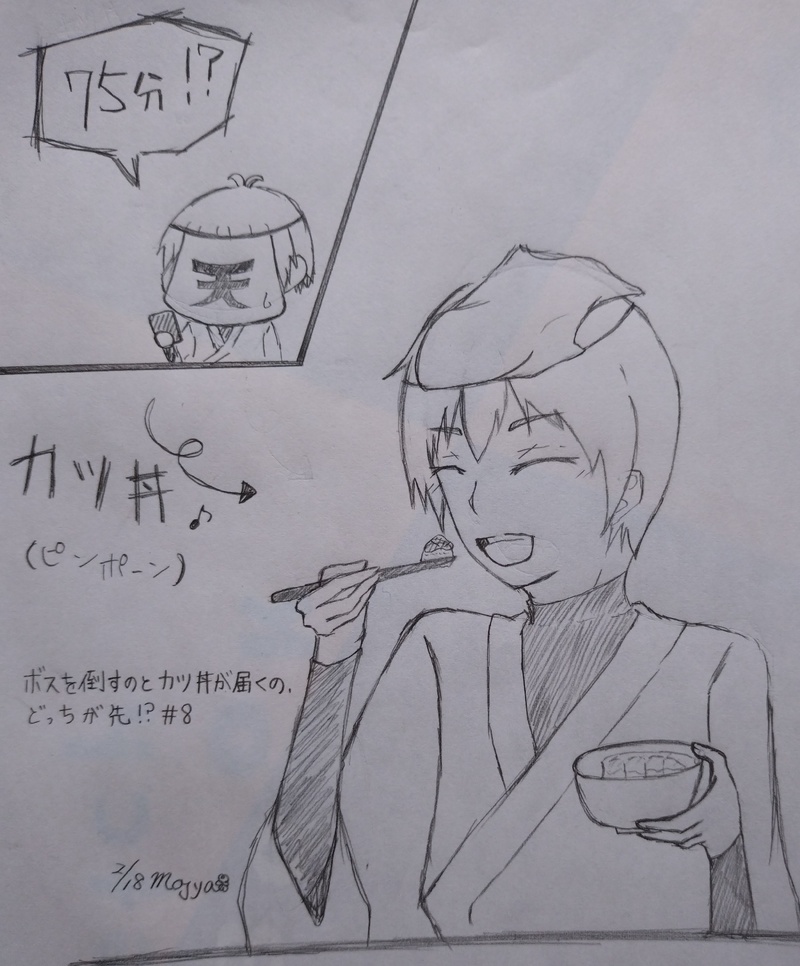 75分!?
天
カツ丼♪
(ピンポーン)
ボスを倒すのとカツ丼が届くの、
どっちが先!?#8
2/18 Mojya